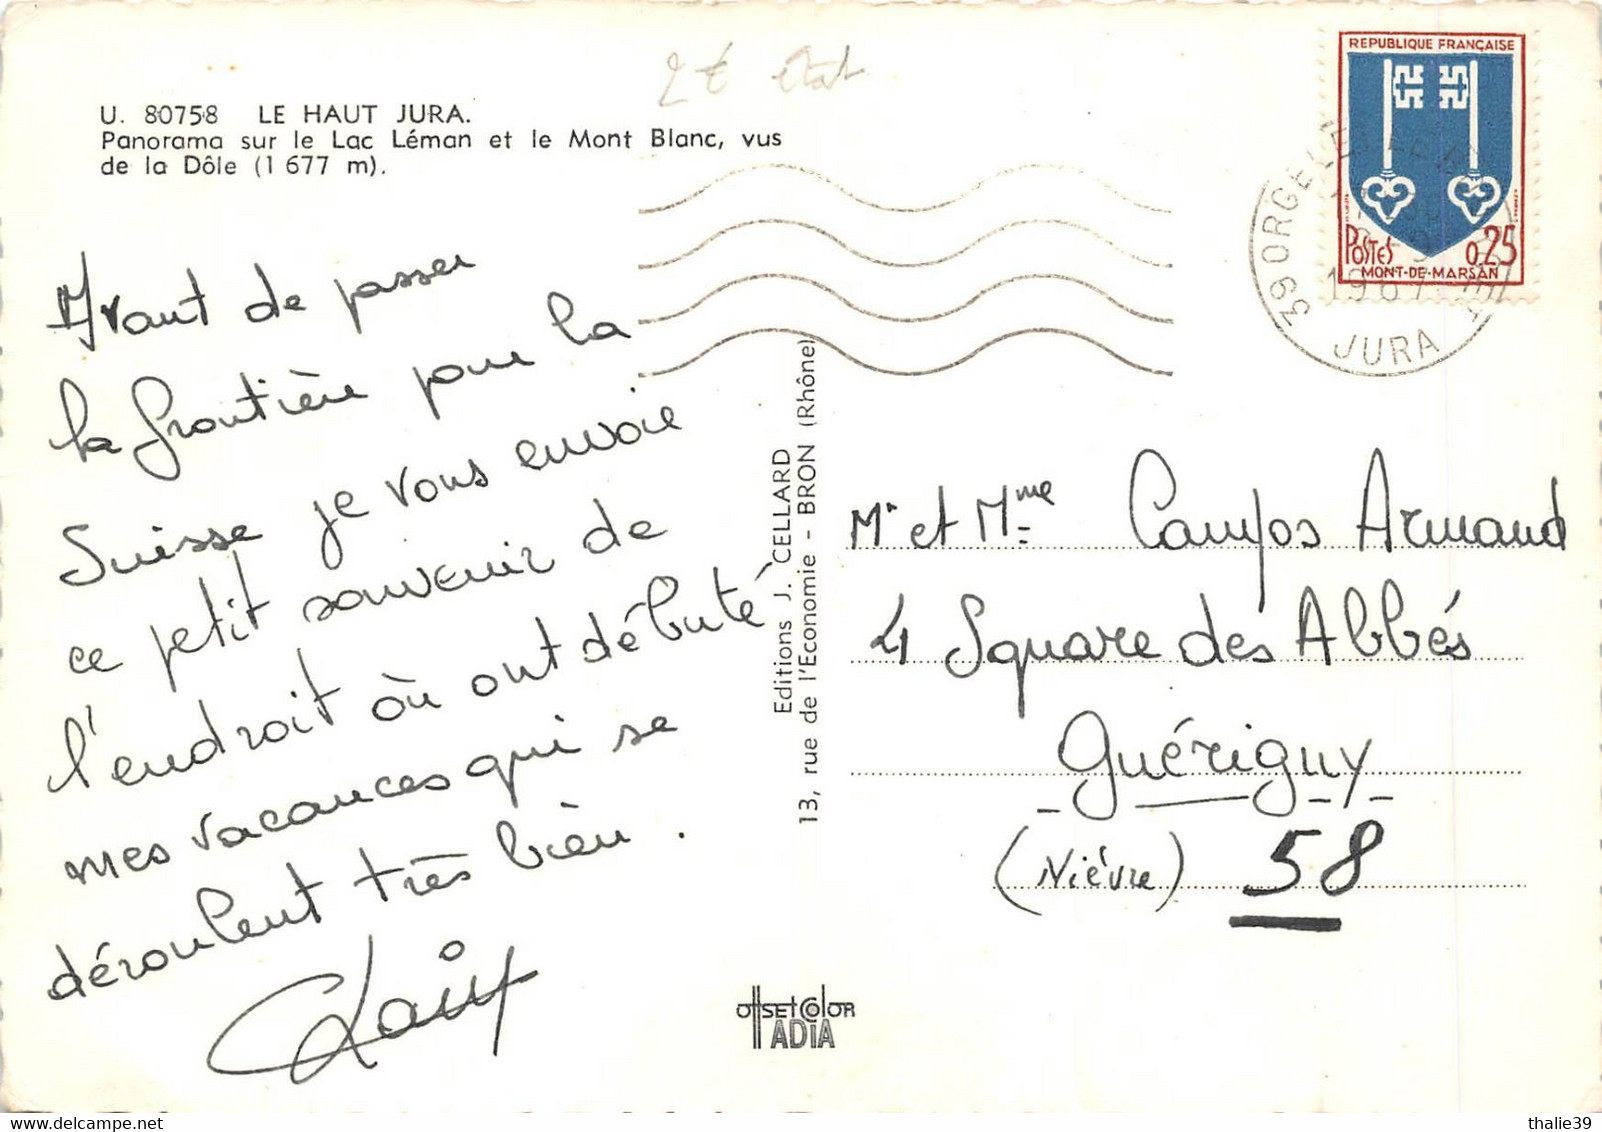 2€ état
U. 80758 LE HAUT JURA.
Panorama sur le Lac Léman et le Mont Blanc, vus
de la Dôle (1 677 m).
REPUBLIQUE FRANÇAISE
POSTES 0,25
MONT-DE-MARSAN
39 ORGELET LE
1967
JURA
Avant de passer
la frontière pour la
Suisse je vous envoie
ce petit souvenir de
l'endroit où ont débuté
mes vacances qui se
déroulent très bien.
Editions J. CELLARD
13, rue de l'Economie - BRON (Rhône)
Mr et Mme Campos Armand
4 Square des Abbés
Guérigny
(Nièvre) 58
OffSEt COlOR
IADIA
thalie39